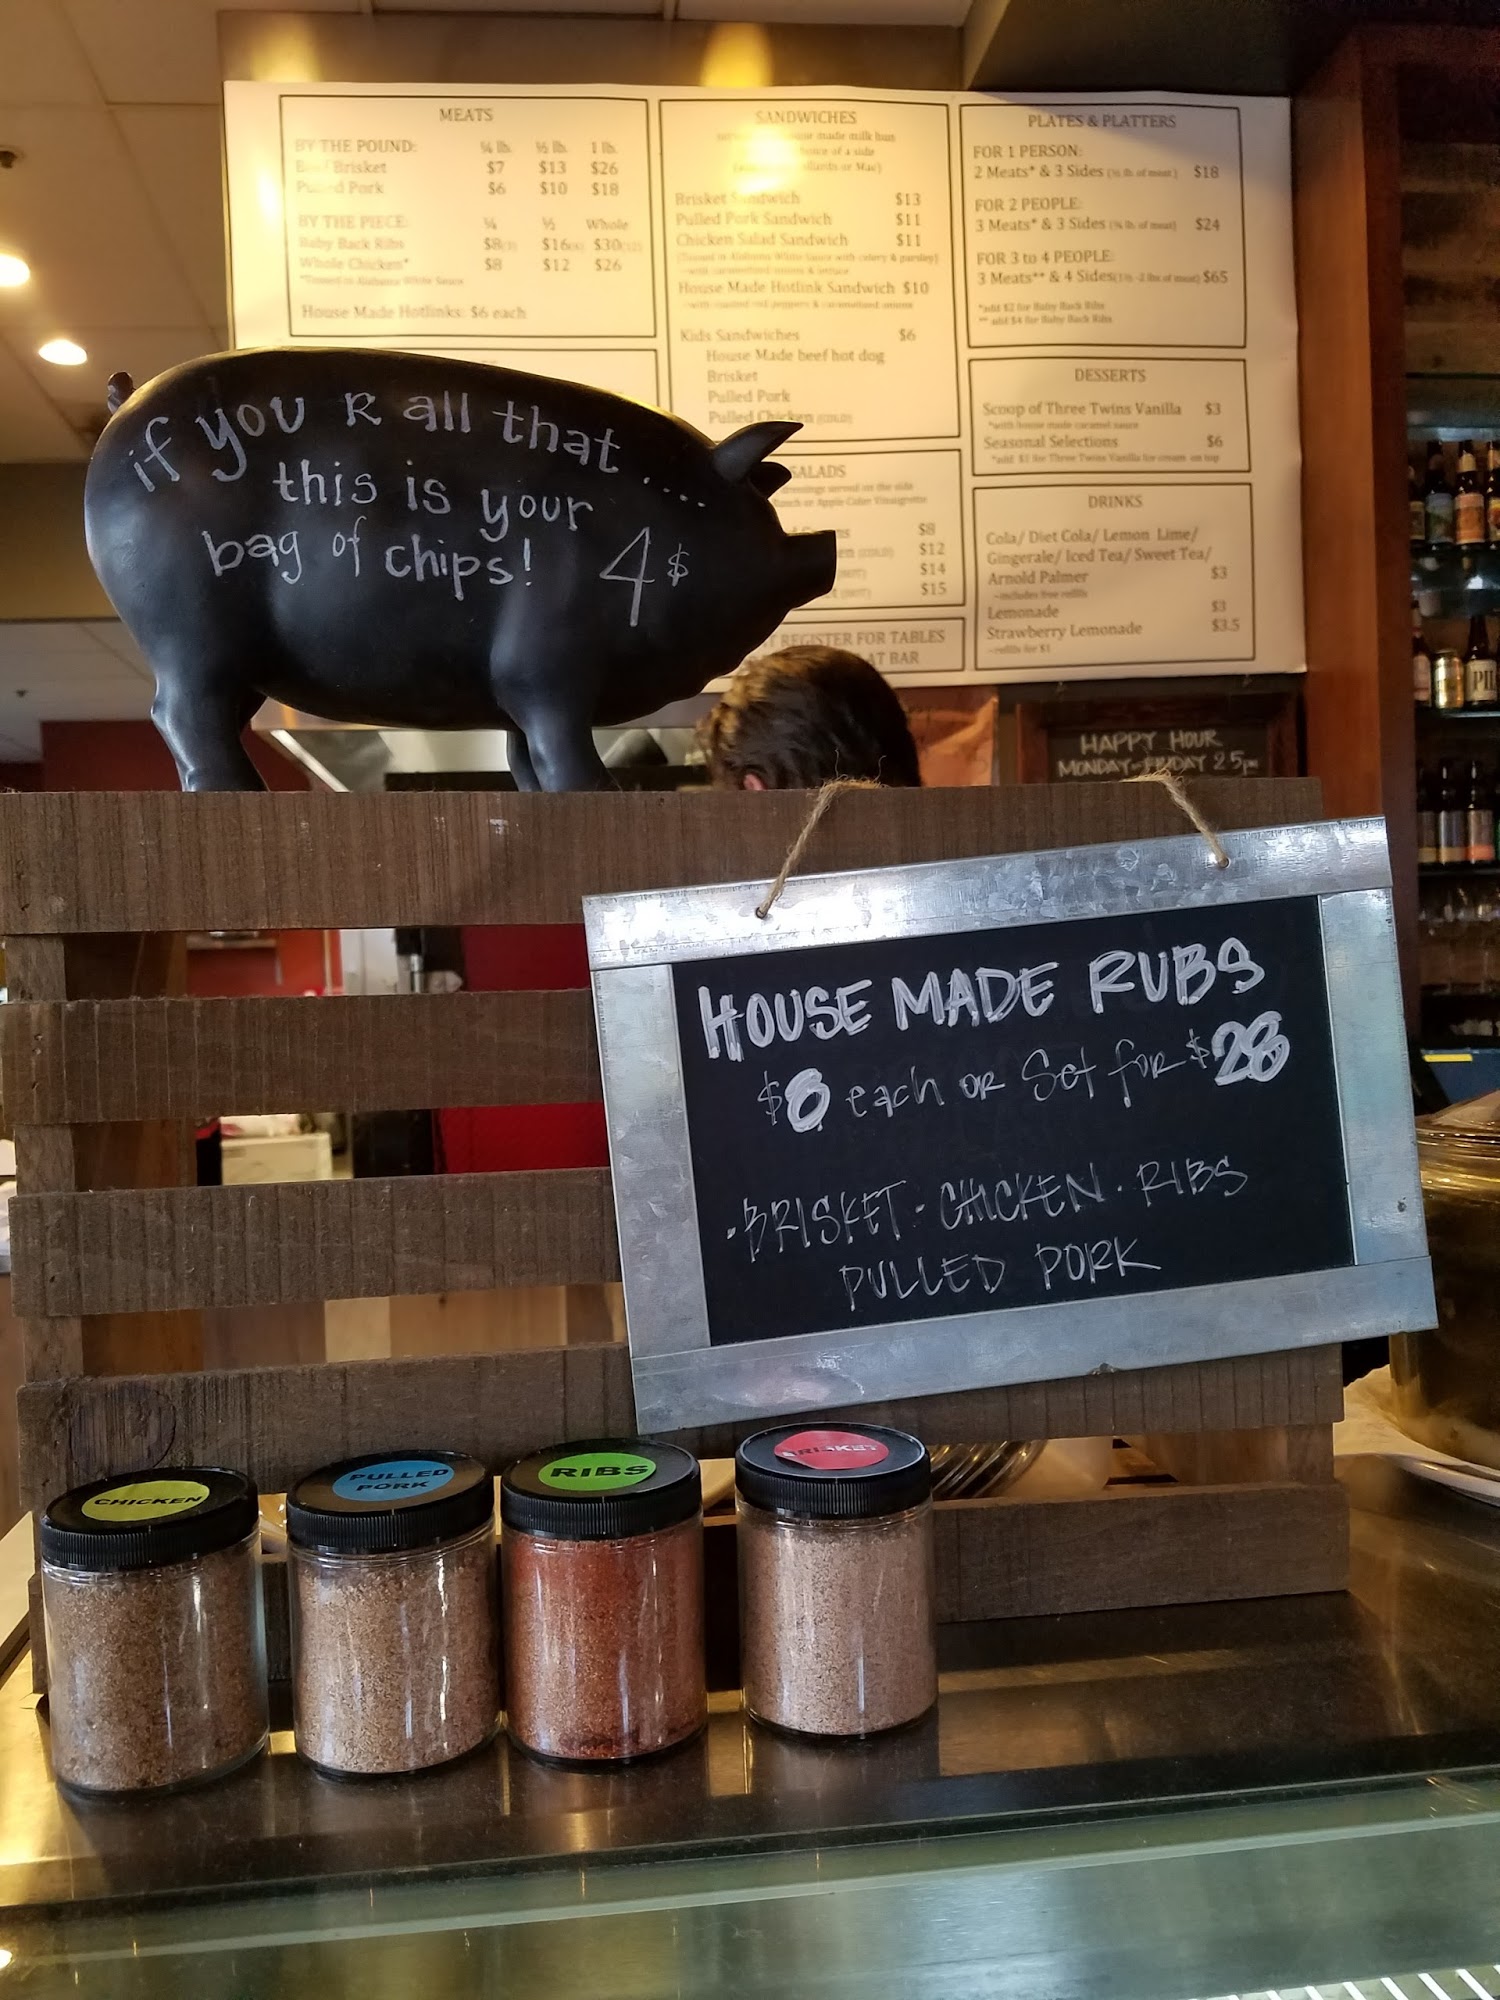 MEATS
BY THE POUND: ¼ lb. ½ lb. 1 lb.
Brisket $7 $13 $26
Pork $6 $10 $18
BY THE PIECE: ¼ ½ Whole
Baby Back Ribs $8 $16 $30
Whole Chicken* $8 $12 $26
*Tossed in Alabama White Sauce
House Made Hotlinks: $6 each
SANDWICHES
made milk bun
of a side
or Mac)
Brisket Sandwich $13
Pulled Pork Sandwich $11
Chicken Salad Sandwich $11
(Tossed in Alabama White Sauce with celery & parsley)
~with caramelized onions & lettuce
House Made Hotlink Sandwich $10
~with roasted red peppers & caramelized onions
Kids Sandwiches $6
House Made beef hot dog
Brisket
Pulled Pork
Pulled Chicken (COLD)
SALADS
served on the side
or Apple Cider Vinaigrette
$8
(COLD) $12
(HOT) $14
(HOT) $15
REGISTER FOR TABLES
AT BAR
PLATES & PLATTERS
FOR 1 PERSON:
2 Meats* & 3 Sides (½ lb. of meat) $18
FOR 2 PEOPLE:
3 Meats* & 3 Sides (¾ lb. of meat) $24
FOR 3 to 4 PEOPLE:
3 Meats** & 4 Sides (1½ -2 lbs of meat) $65
*add $2 for Baby Back Ribs
** add $4 for Baby Back Ribs
DESSERTS
Scoop of Three Twins Vanilla $3
*with house made caramel sauce
Seasonal Selections $6
*add $1 for Three Twins Vanilla ice cream on top
DRINKS
Cola/ Diet Cola/ Lemon Lime/
Gingerale/ Iced Tea/ Sweet Tea/
Arnold Palmer $3
~includes free refills
Lemonade $3
Strawberry Lemonade $3.5
~refills for $1
if you R all that....
this is your
bag of chips! 4$
HAPPY HOUR
MONDAY-FRIDAY 2 5pm
HOUSE MADE RUBS
$8 each or Set for $28
·BRISKET·CHICKEN·RIBS
PULLED PORK
CHICKEN
PULLED
PORK
RIBS
BRISKET